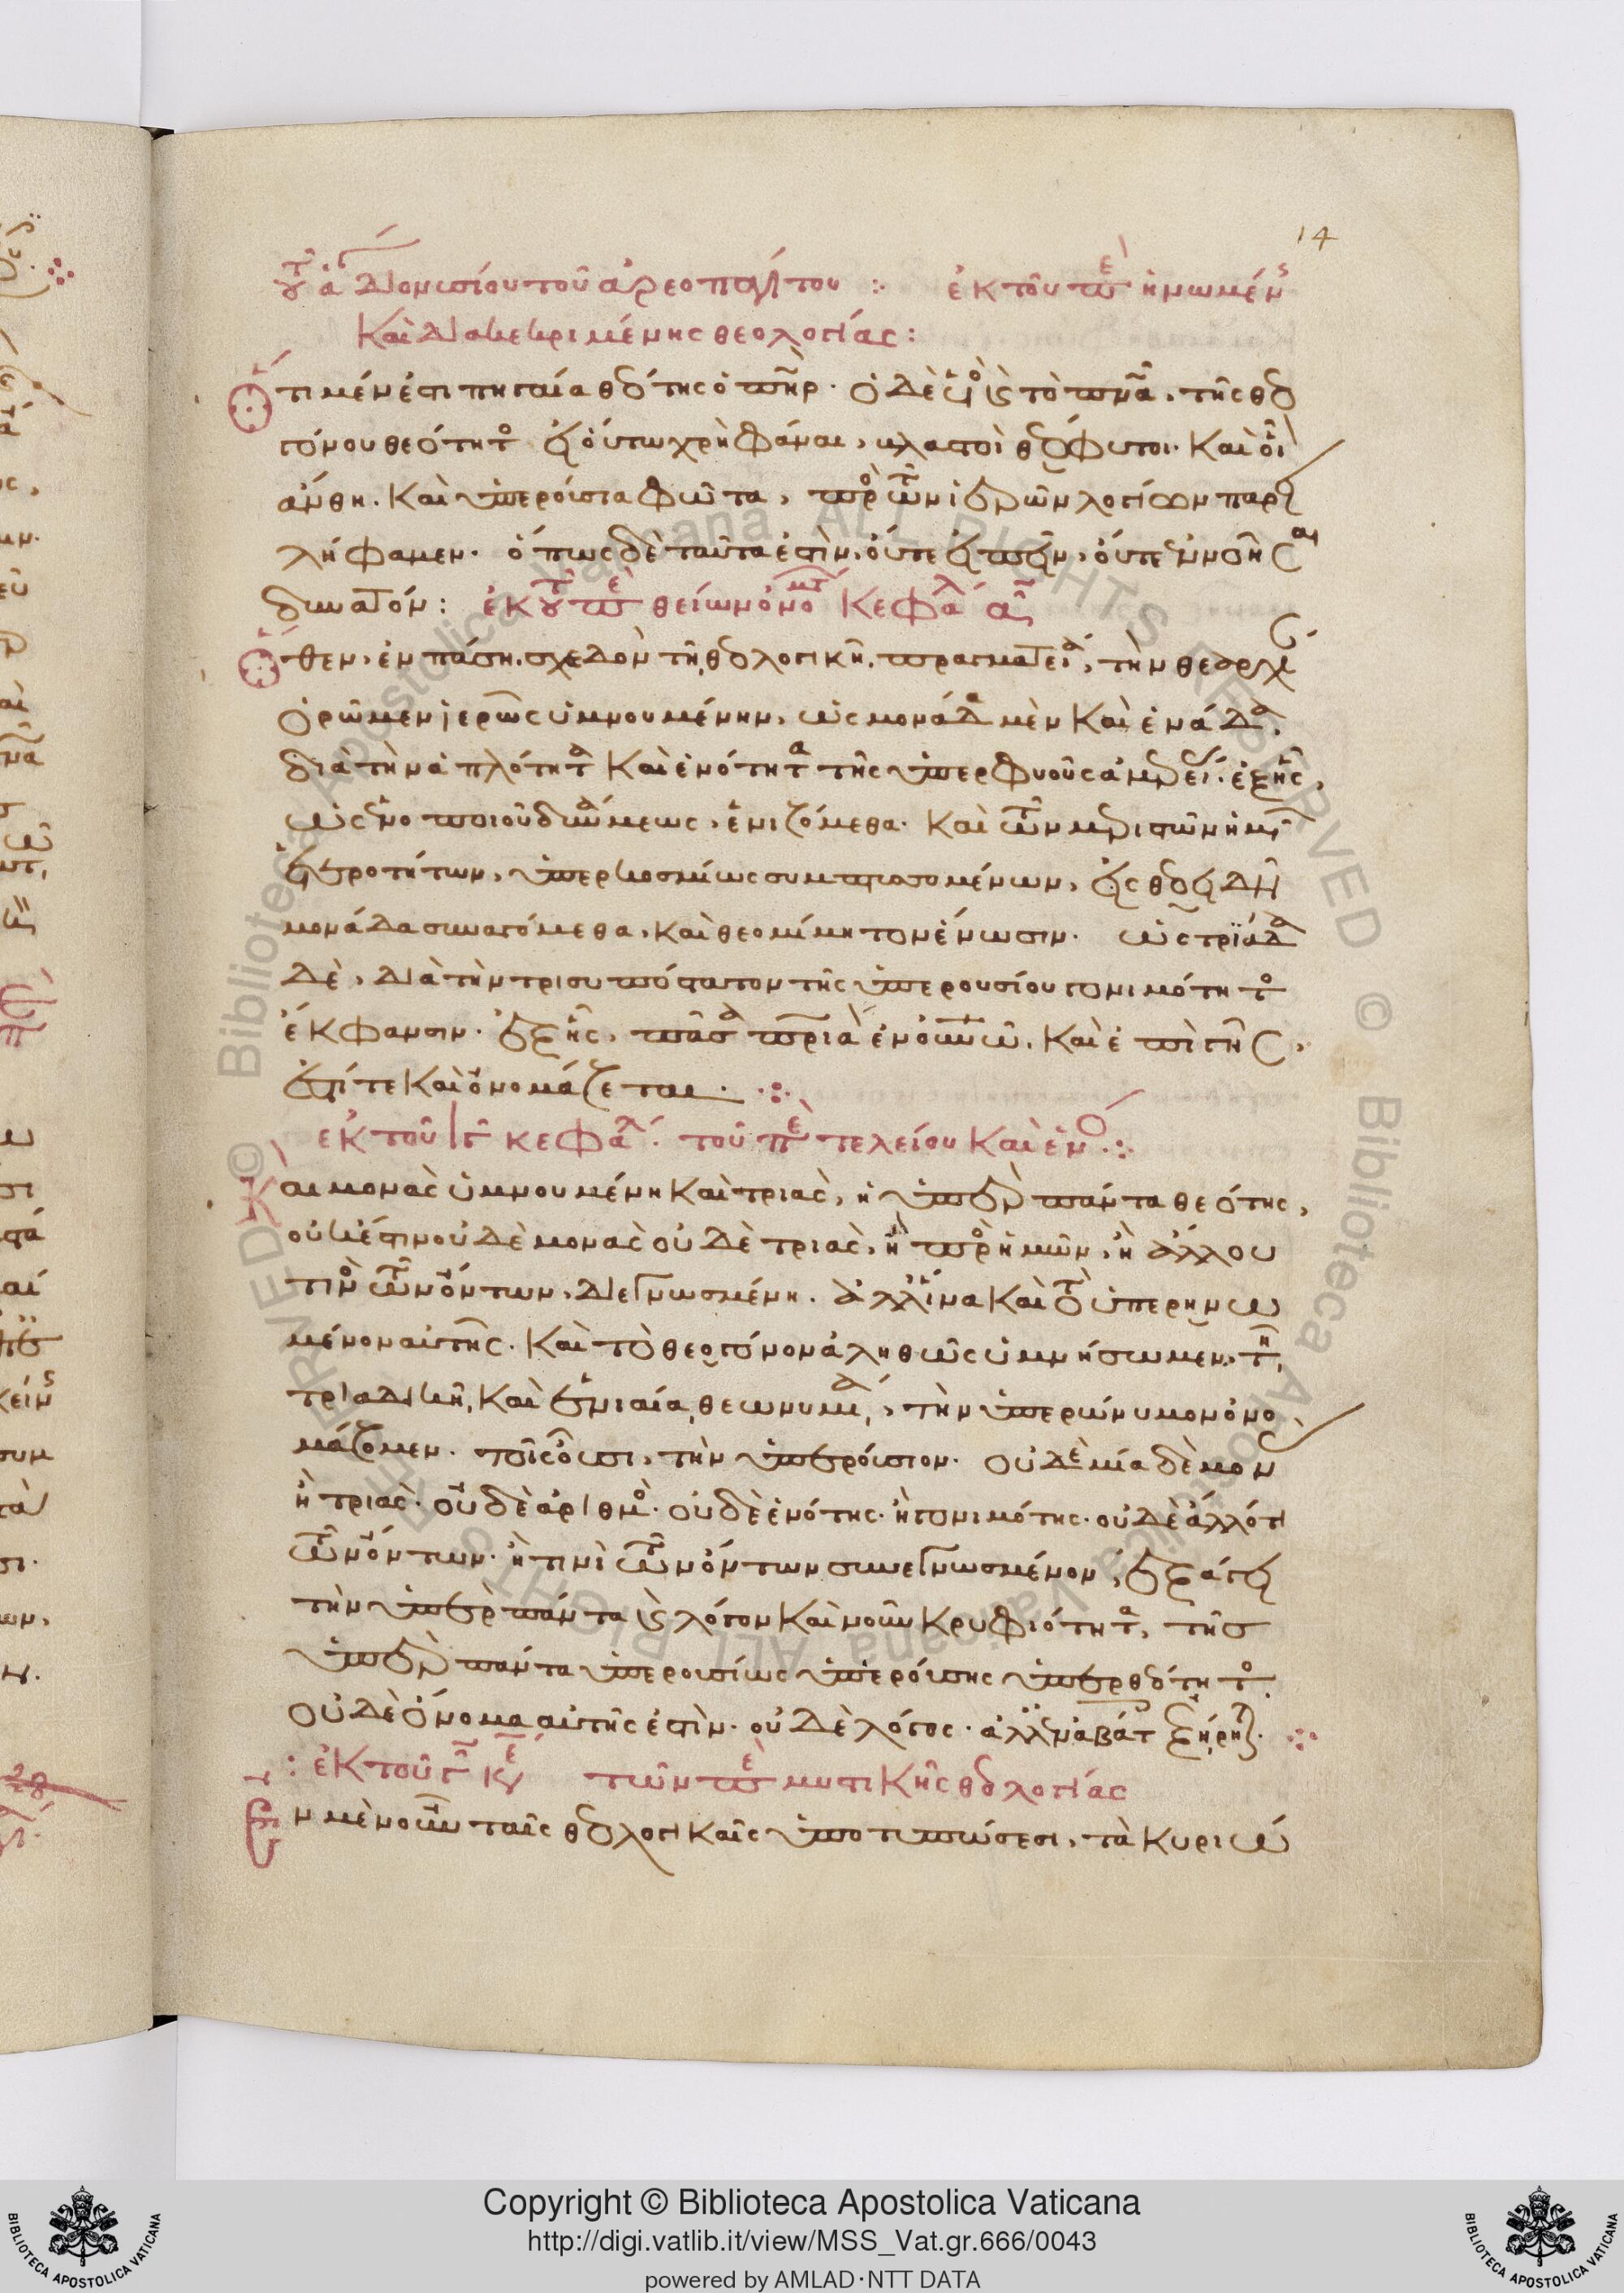 14
τοῦ ἁγίου Διονυσίου τοῦ ἀρεοπαγίτου : ἐκ τοῦ περὶ ἡνωμένης
καὶ διακεκριμένης θεολογίας :
Ὅτι μέν ἐστι πηγαία θεότης ὁ πατήρ. ὁ δὲ υἱὸς καὶ τὸ πνεῦμα, τῆς θεο
γόνου θεότητος εἰ οὕτω χρὴ φάναι, βλαστοὶ θεόφυτοι. καὶ οἷον
ἄνθη. καὶ ὑπερούσια φῶτα, πρὸς τῶν ἱερῶν λογίων παρει
λήφαμεν. ὅπως δὲ ταῦτα ἐστὶν, οὔτε εἰπεῖν, οὔτε ἐννοῆσαι
δυνατόν : ἐκ τοῦ περὶ θείων ὀνομάτων κεφαλαίου
Ὅθεν, ἐν πάσῃ σχεδὸν τῇ θεολογικῇ πραγματείᾳ, τὴν θεαρχίαν
ὁρῶμεν ἱερῶς ὑμνουμένην, ὡς μονάδα μὲν καὶ ἑνάδα,
διὰ τὴν ἁπλότητα καὶ ἑνότητα τῆς ὑπερφυοῦς ἀμερείας. ἐξ ἧς,
ὡς ἑνοποιοῦ δυνάμεως, ἑνιζόμεθα. καὶ τῶν μεριστῶν ἡμῶν
ἑτεροτήτων, ὑπερκοσμίως συμπτυσσομένων, εἰς θεοειδῆ
μονάδα συναγόμεθα, καὶ θεομίμητον ἕνωσιν. ὡς τριάδα
δὲ, διὰ τὴν τρισυπόστατον τῆς ὑπερουσίου γονιμότητος
ἔκφανσιν. ἐξ ἧς, πᾶσα πατριὰ ἐν οὐρανῷ, καὶ ἐπὶ γῆς,
ἐστί τε καὶ ὀνομάζεται.
ἐκ τοῦ ιγ κεφαλ. τοῦ περὶ τελείου καὶ ἑνός
Καὶ μονὰς ὑμνουμένη καὶ τριὰς, ἡ ὑπὲρ πάντα θεότης,
οὐκ ἔστιν οὐδὲ μονὰς οὐδὲ τριὰς, ἡ πρὸς ἡμῶν, ἢ ἄλλου
τινὸς τῶν ὄντων, διεγνωσμένη. ἀλλ' ἵνα καὶ τὸ ὑπερηνω
μένον αὐτῆς. καὶ τὸ θεογόνον ἀληθῶς ὑμνήσωμεν, τῇ
τριαδικῇ, καὶ ἑνιαίᾳ θεωνυμίᾳ, τὴν ὑπερώνυμον ὀνο
μάζομεν. τοῖς οὖσι, τὴν ὑπερούσιον. οὐδεμία δὲ μονὰς
ἢ τριὰς. οὐδὲ ἀριθμὸς. οὐδὲ ἑνότης. ἢ γονιμότης. οὐδὲ ἄλλό τι
τῶν ὄντων. ἤ τινὶ τῶν ὄντων συνεγνωσμένον, ἐξάγει
τὴν ὑπὲρ πάντα καὶ λόγον καὶ νοῦν κρυφιότητα, τῆς
ὑπὲρ πάντα ὑπερουσίως ὑπερούσης ὑπερθεότητος
οὐδὲ ὄνομα αὐτῆς ἐστὶν. οὐδὲ λόγος. ἀλλ' ἐν ἀβάτοις ἐξῄρηται.
: ἐκ τοῦ γ κεφ τῶν περὶ μυστικῆς θεολογίας
Ἐν μὲν οὖν ταῖς θεολογικαῖς ὑποτυπώσεσι, τὰ κυριώ